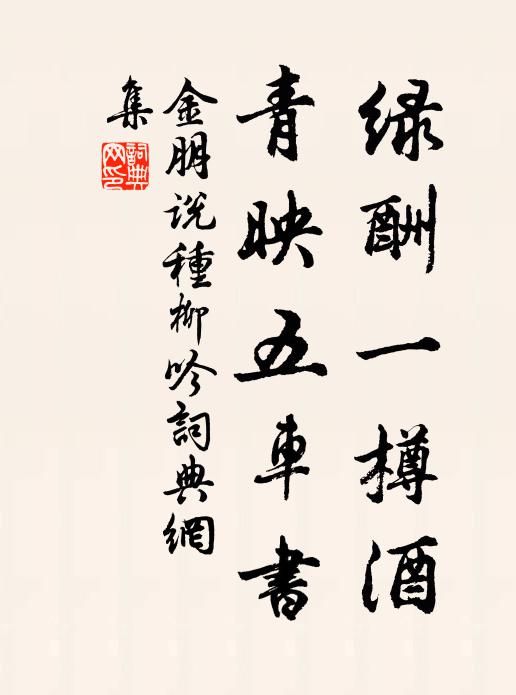 绿酬一樽酒
青映五車書
金朋说種柳吟詞典網
集
詞典
网印